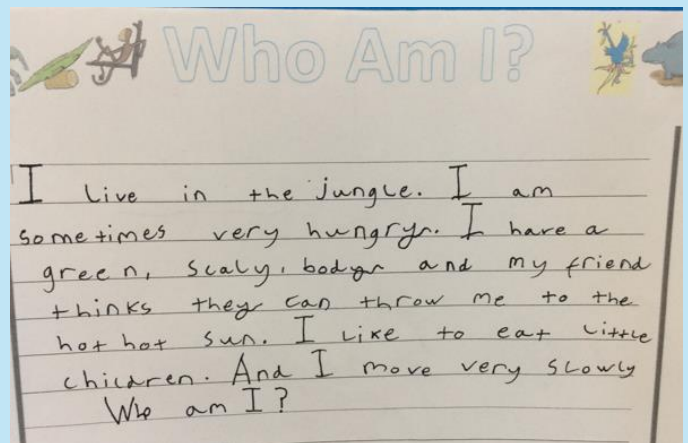 Who Am I?
I live in the jungle. I am
sometimes very hungry. I have a
green, scaly, body and my friend
thinks they can throw me to the
hot hot sun. I like to eat little
children. And I move very slowly
Who am I?